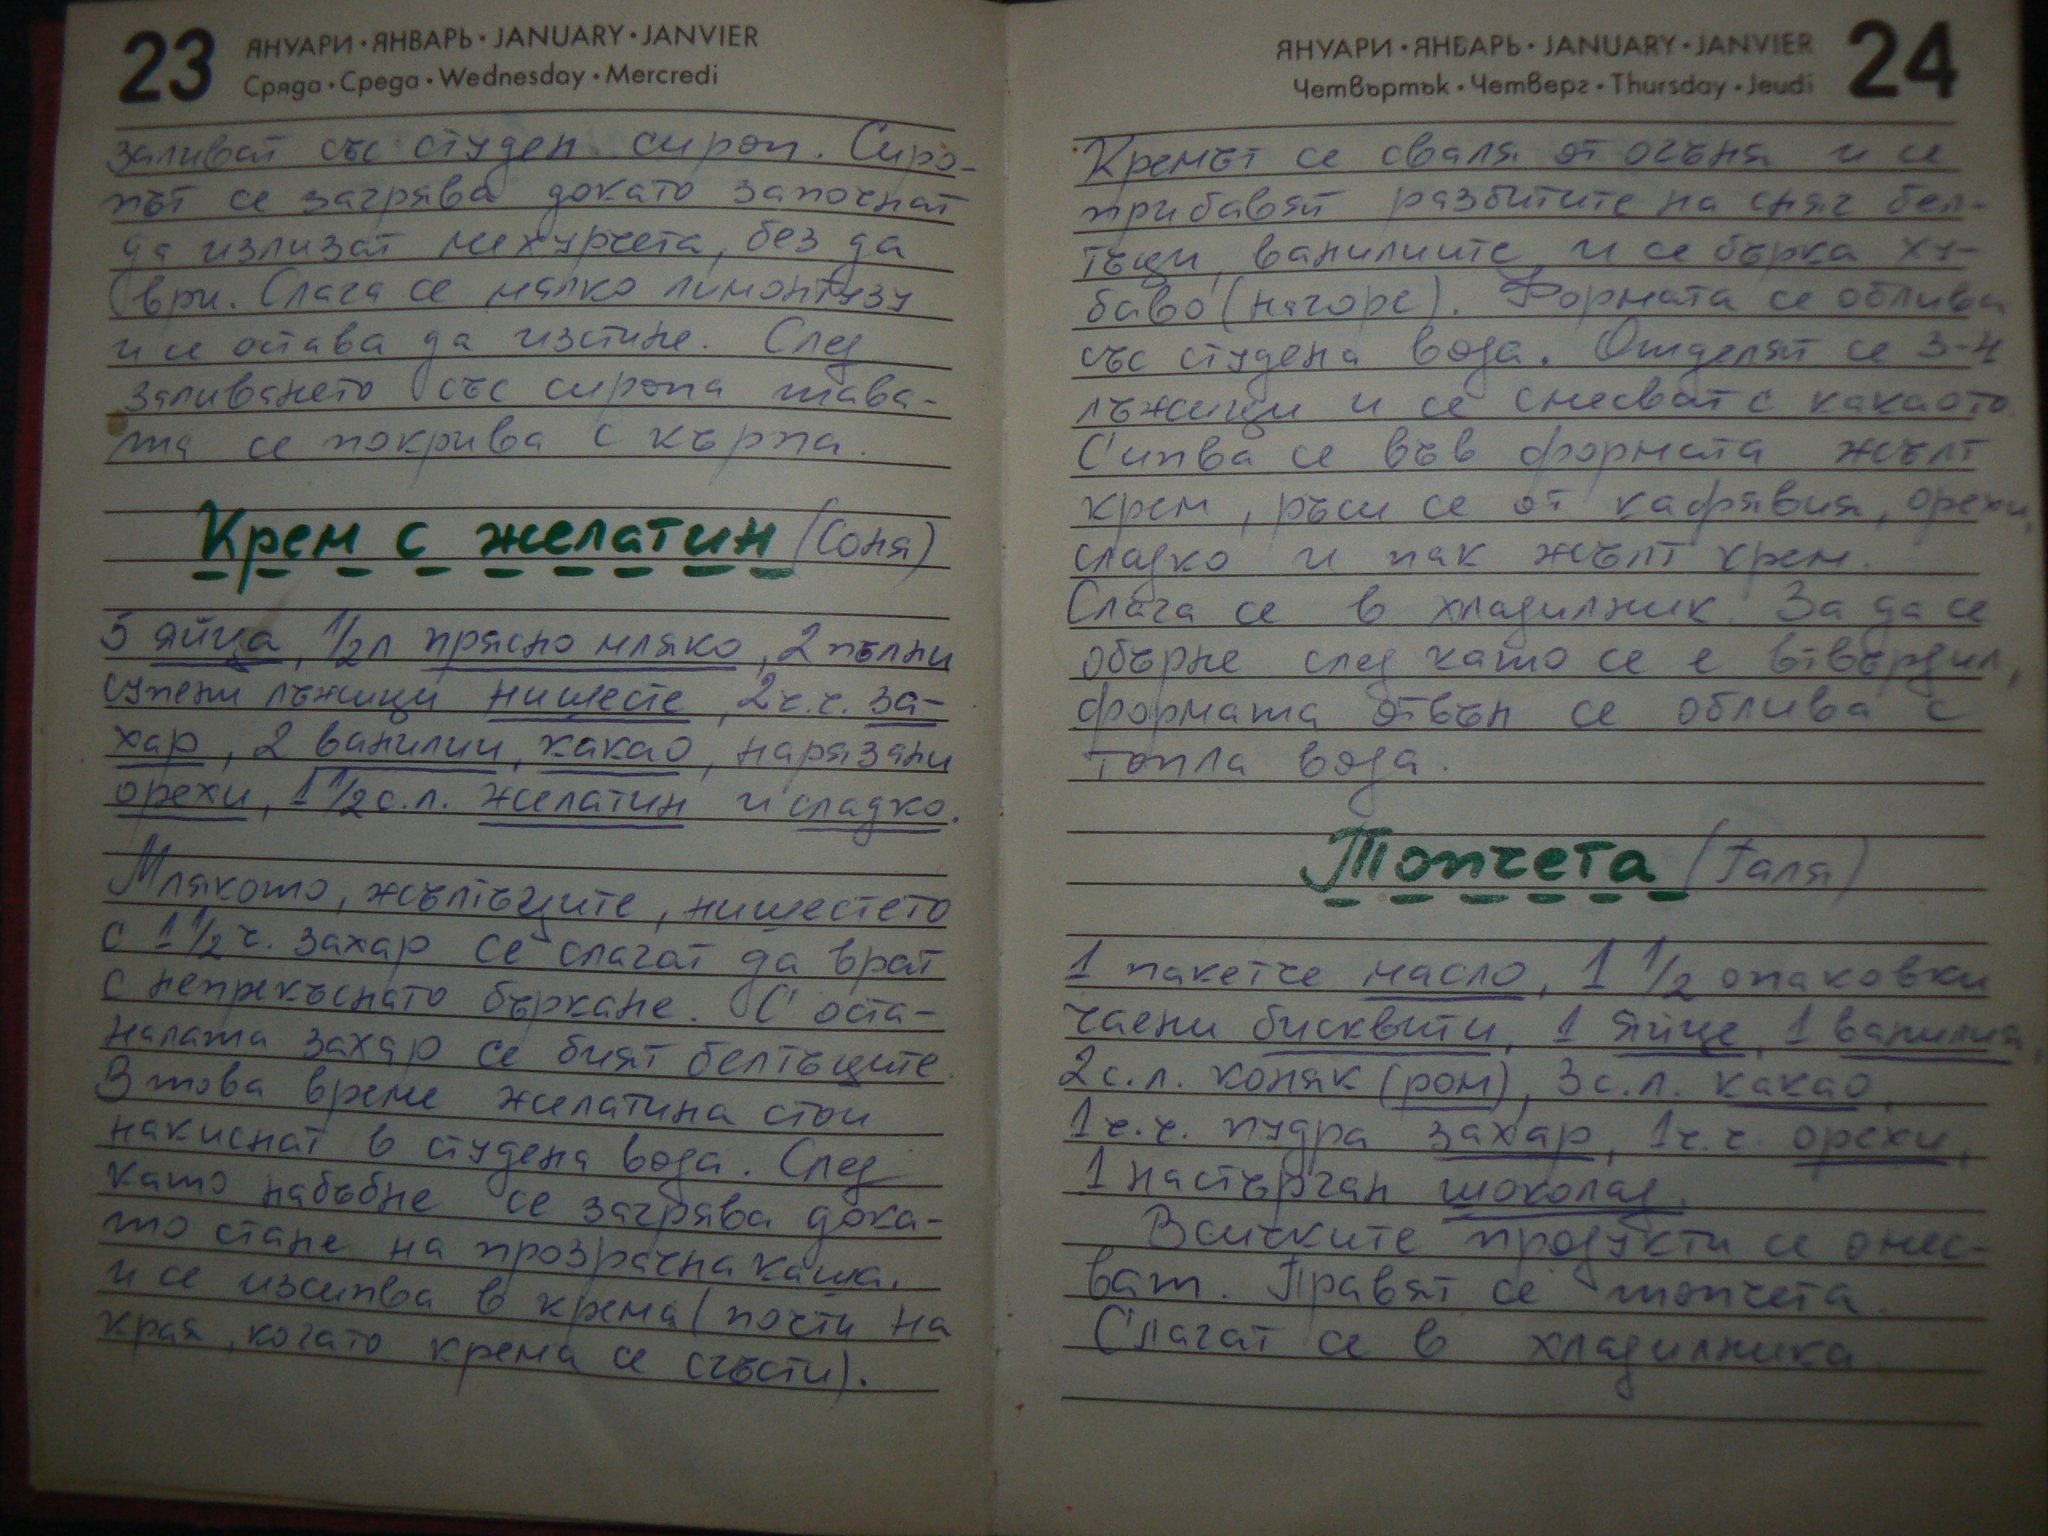 23 ЯНУАРИ • ЯНВАРЬ • JANUARY • JANVIER
Сряда • Среда • Wednesday • Mercredi
заливат със студен сироп. Сиро-
път се загрява докато започнат
да излизат мехурчета, без да
ври. Слага се малко лимонтузу
и се остава да изстине. След
заливането със сиропа тава-
та се покрива с кърпа.
Крем с желатин (Соня)
5 яйца, 1/2 л прясно мляко, 2 пълни
супени лъжици нишесте, 2 ч.ч. за-
хар, 2 ванилии, какао, нарязани
орехи, 1 1/2 с.л. желатин и сладко.
Млякото, жълтъците, нишестето
с 1 1/2 ч. захар се слагат да врат
с непрекъснато бъркане. С оста-
налата захар се бият белтъците.
В това време желатина стои
накиснат в студена вода. След
като набъбне се загрява дока-
то стане на прозрачна каша.
и се изсипва в крема (почти на
края, когато крема се сгъсти).
ЯНУАРИ • ЯНВАРЬ • JANUARY • JANVIER 24
Четвъртък • Четверг • Thursday • Jeudi
Кремът се сваля от огъня и се
прибавят разбитите на сняг бел-
тъци, ванилиите и се бърка ху-
баво (нагоре). Формата се облива
със студена вода. Отделят се 3-4
лъжици и се смесват с какаото.
Сипва се във формата жълт
крем, ръси се от кафявия, орехи,
сладко и пак жълт крем.
Слага се в хладилник. За да се
обърне след като се е втвърдил,
формата отвън се облива с
топла вода.
Топчета (Галя)
1 пакетче масло, 1 1/2 опаковки
чаени бисквити, 1 яйце, 1 ванилия,
2 с.л. коняк (ром), 3 с.л. какао,
1 ч.ч. пудра захар, 1 ч.ч. орехи,
1 настърган шоколад.
Всичките продукти се смес-
ват. Правят се топчета.
Слагат се в хладилника.